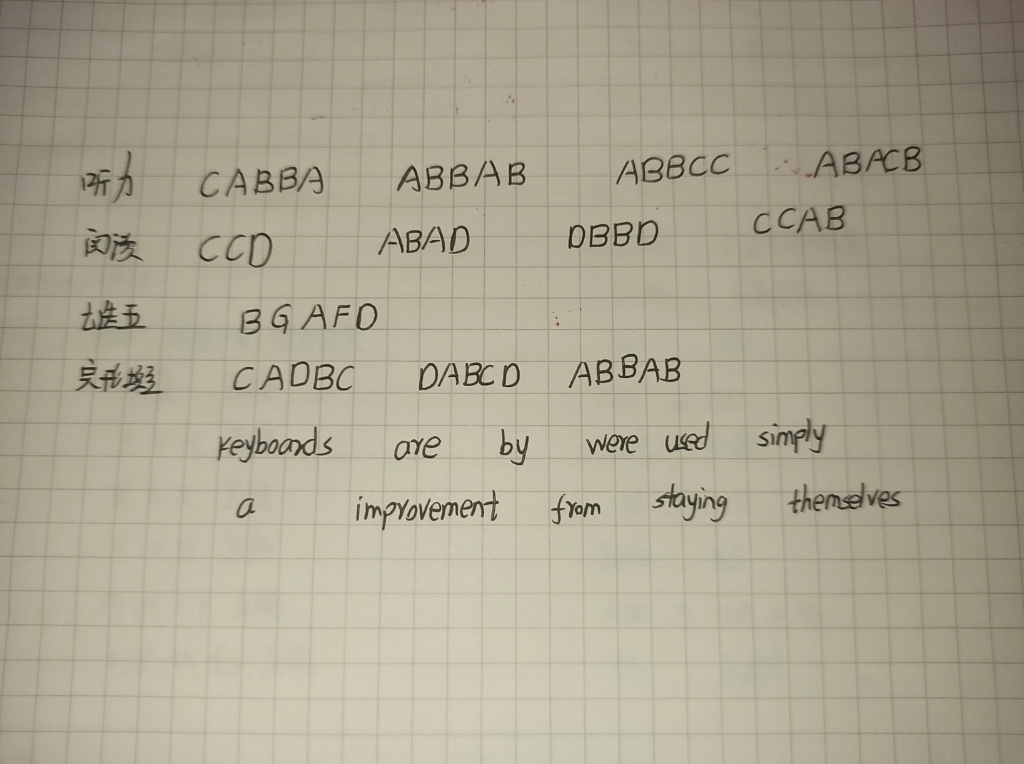 听力 CABBA ABBAB ABBCC ABACB
阅读 CCD ABAD DBBD CCAB
七选五 BGAFD
完形填空 CADBC DABCD ABBAB
keyboards are by were used simply
a improvement from staying themselves